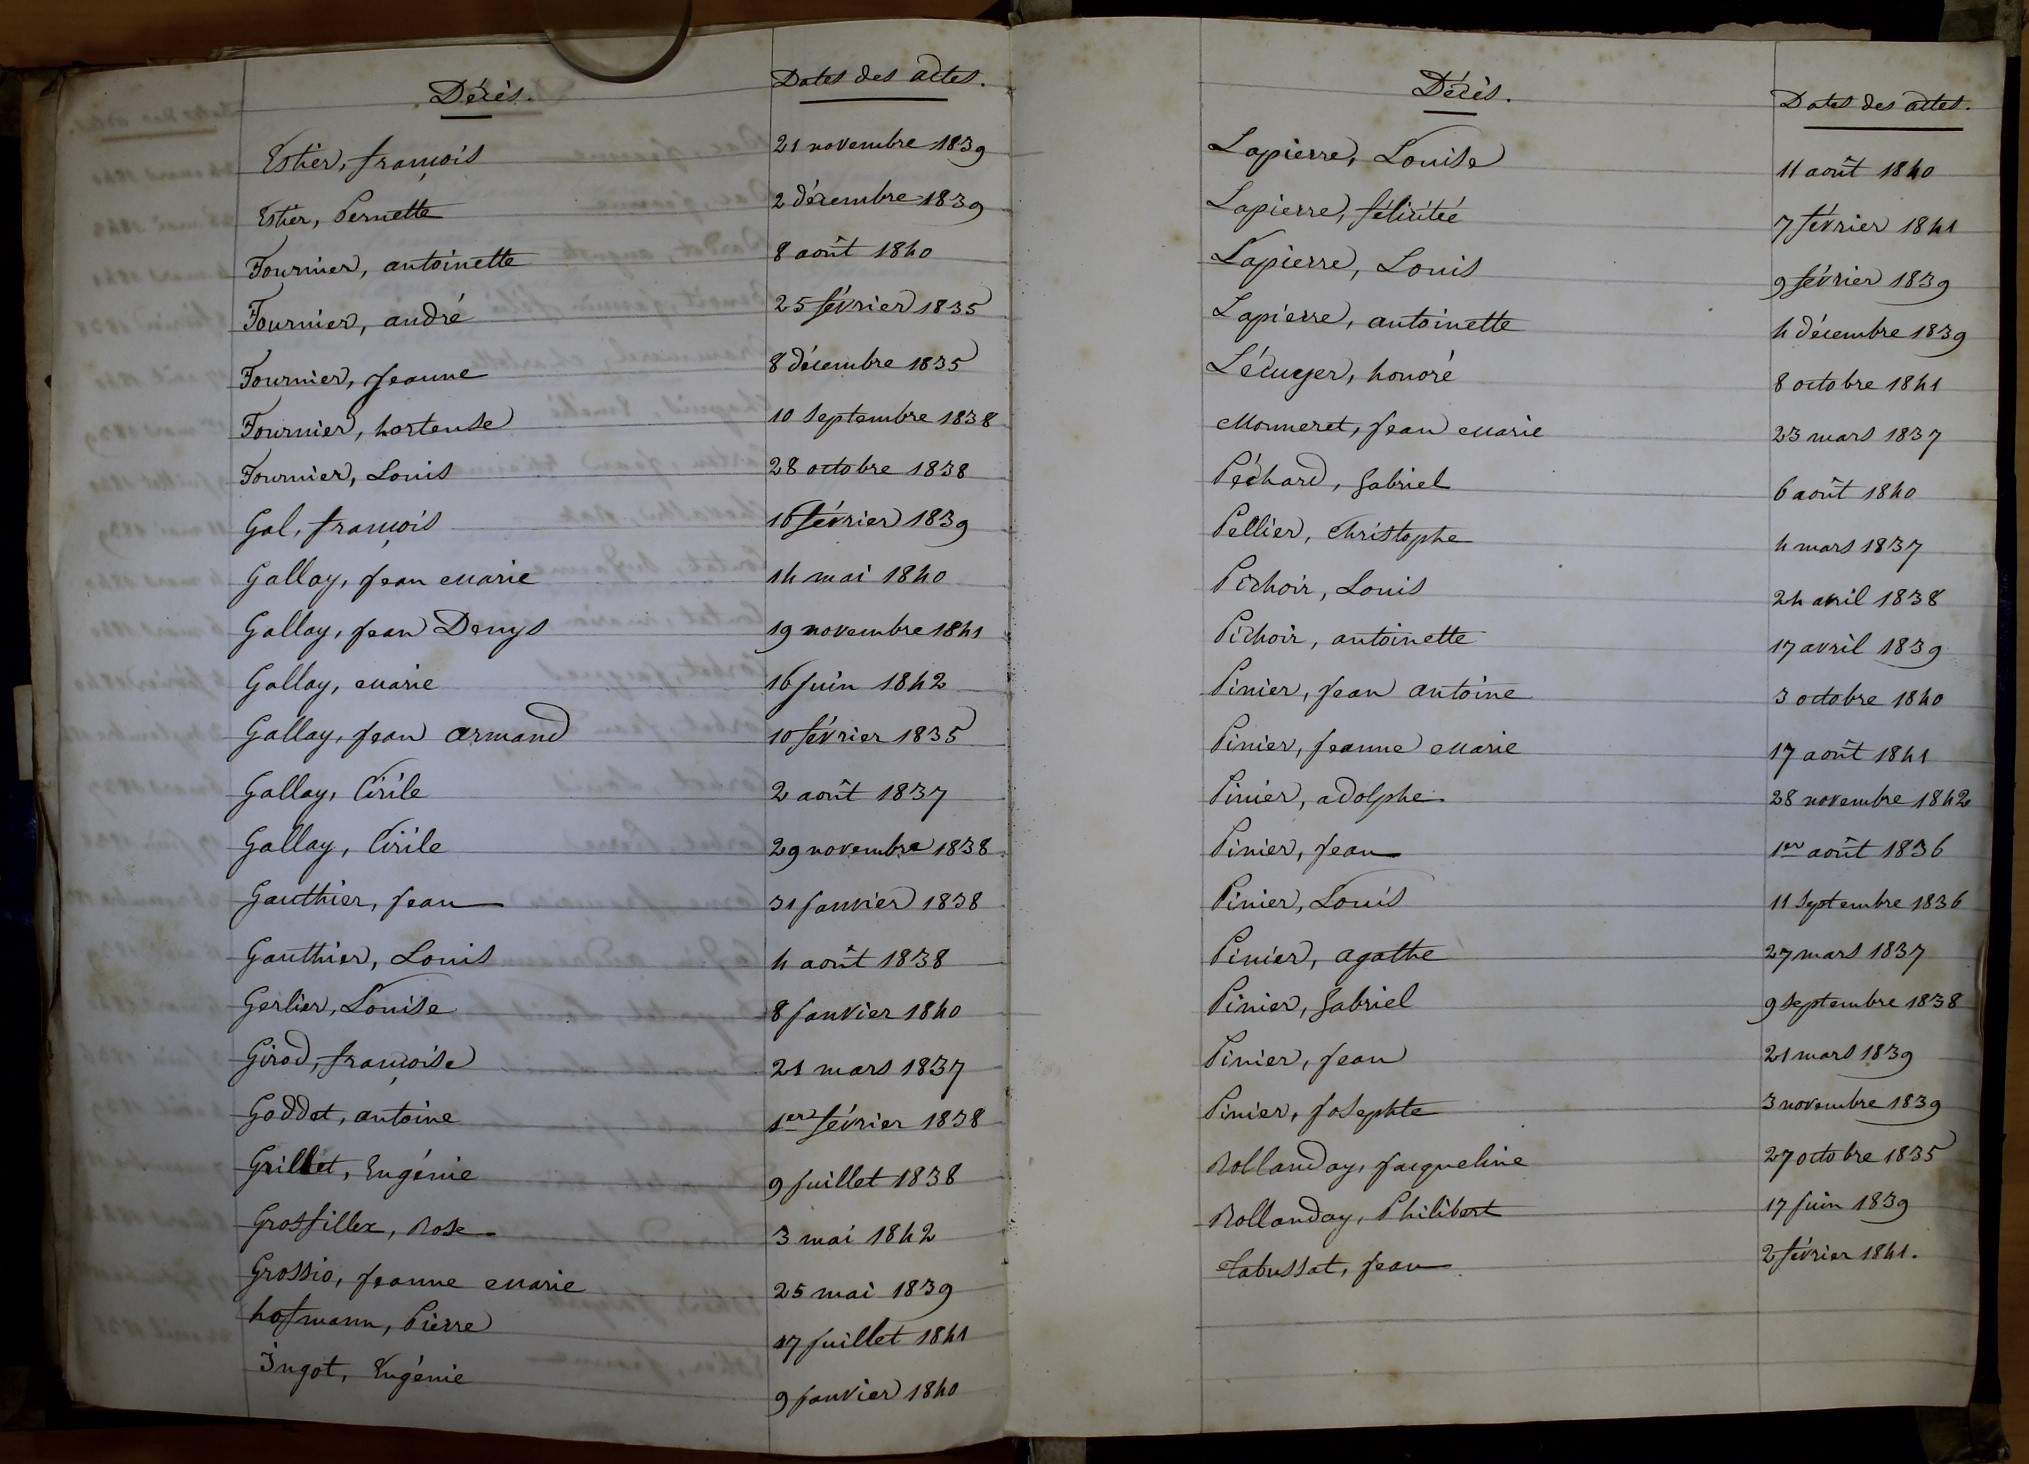 Décès. Dates des actes.
Estier, françois 21 novembre 1839
Estier, Pernette 2 décembre 1839
Fournier, antoinette 8 août 1840
Fournier, andré 25 février 1835
Fournier, Jeanne 8 décembre 1835
Fournier, hortense 10 septembre 1838
Fournier, Louis 28 octobre 1838
Gal, françois 16 février 1839
Gallay, Jean Marie 14 mai 1840
Gallay, Jean Denys 19 novembre 1841
Gallay, Marie 16 Juin 1842
Gallay, Jean armand 10 février 1835
Gallay, Cirile 2 août 1837
Gallay, Cirile 29 novembre 1838
Gauthier, Jean 31 Janvier 1838
Gauthier, Louis 4 août 1838
Gerlier, Louise 8 Janvier 1840
Girod, françoise 21 mars 1837
Goddet, antoine 1er février 1838
Grillet, Eugénie 9 Juillet 1838
Grosfillex, Rose 3 mai 1842
Grossio, Jeanne Marie 25 mai 1839
hofmann, Pierre 17 Juillet 1841
Ingot, Eugénie 9 Janvier 1840
Décès. Dates des actes.
Lapierre, Louise 11 août 1840
Lapierre, félicitée 7 février 1841
Lapierre, Louis 9 février 1839
Lapierre, antoinette 4 décembre 1839
Lécuyer, honoré 8 octobre 1841
Monneret, Jean Marie 23 mars 1837
Péchard, Gabriel 6 août 1840
Pellier, Christophe 4 mars 1837
Pichoir, Louis 24 avril 1838
Pichoir, antoinette 17 avril 1839
Pinier, Jean antoine 3 octobre 1840
Pinier, Jeanne Marie 17 août 1841
Pinier, adolphe 28 novembre 1842
Pinier, Jean 1er août 1836
Pinier, Louis 11 septembre 1836
Pinier, agathe 27 mars 1837
Pinier, Gabriel 9 septembre 1838
Pinier, Jean 21 mars 1839
Pinier, Josephte 3 novembre 1839
Rollanday, Jacqueline 27 octobre 1835
Rollanday, Philibert 17 Juin 1839
Tabussat, Jean 2 février 1841.